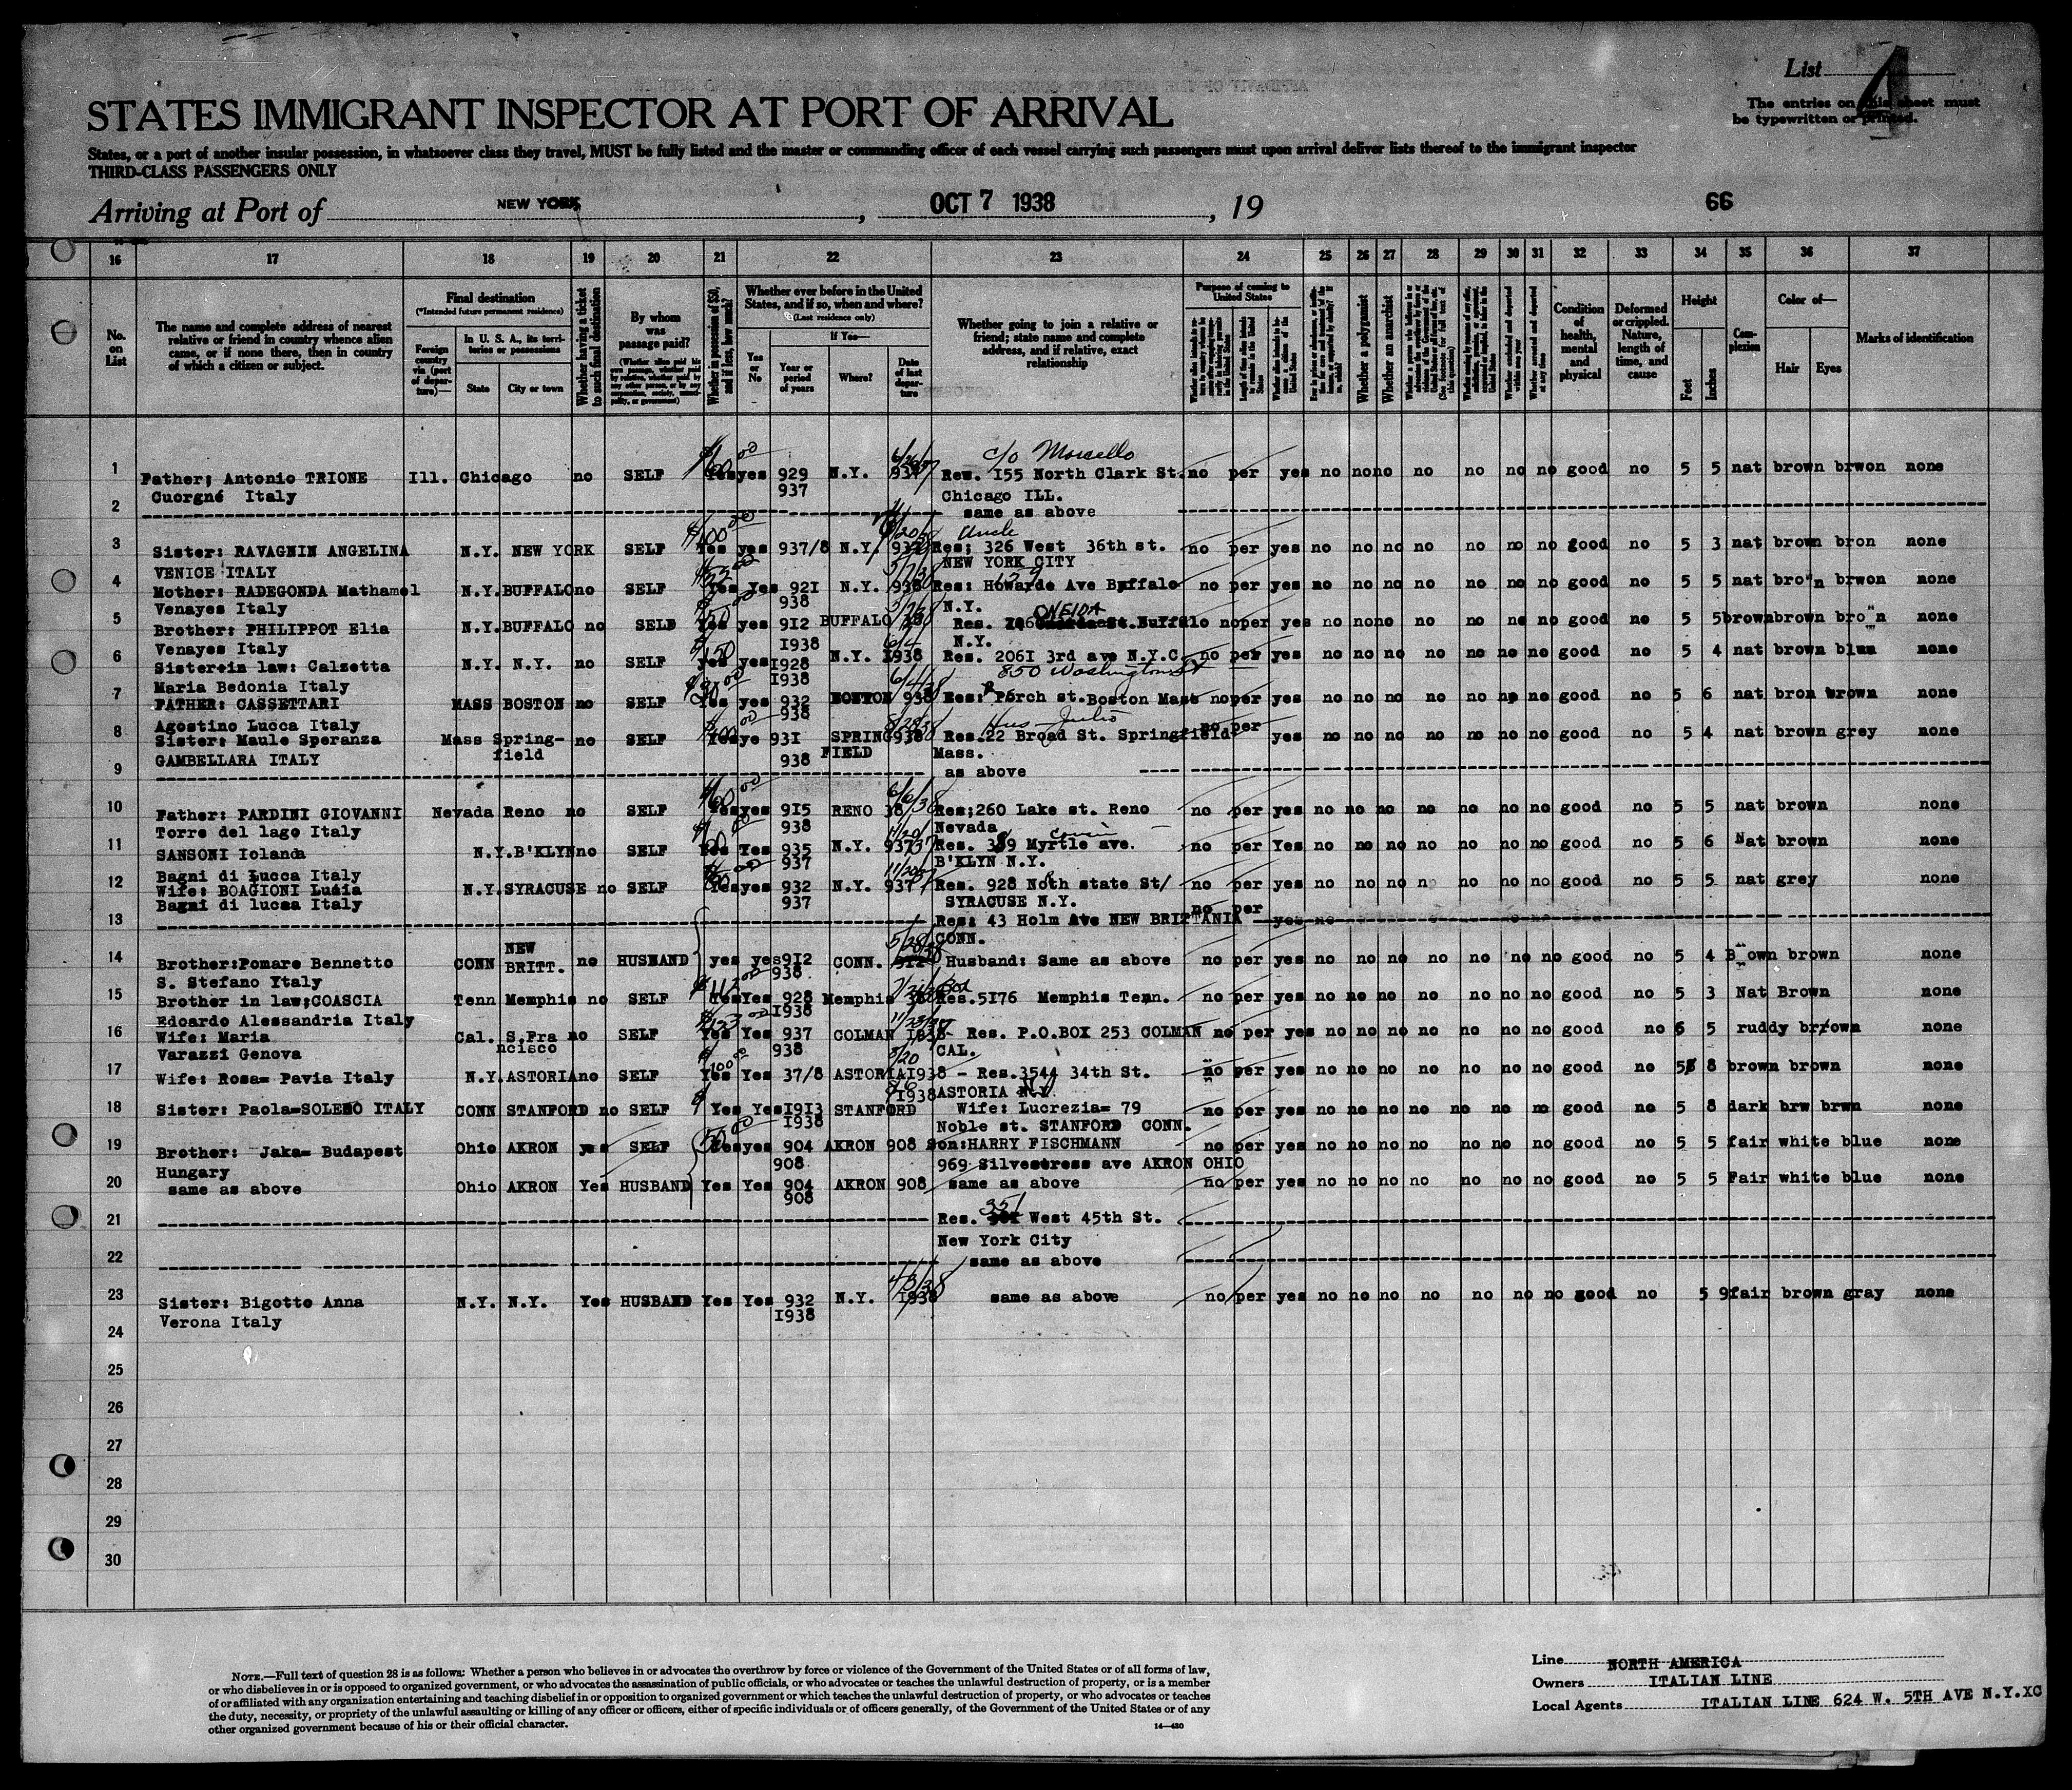 List 4
The entries on this sheet must
be typewritten or printed.
STATES IMMIGRANT INSPECTOR AT PORT OF ARRIVAL
States, or a port of another insular possession, in whatsoever class they travel, MUST be fully listed and the master or commanding officer of each vessel carrying such passengers must upon arrival deliver lists thereof to the immigrant inspector
THIRD-CLASS PASSENGERS ONLY
Arriving at Port of NEW YORK, OCT 7 1938, 19 66
16 17 18 19 20 21 22 23 24 25 26 27 28 29 30 31 32 33 34 35 36 37
No. on List
The name and complete address of nearest relative or friend in country whence alien came, or if none there, then in country of which a citizen or subject.
Final destination
(*Intended future permanent residence)
Foreign country via (port of departure)—
In U. S. A., its territories or possessions
State City or town
Whether having a ticket to such final destination
By whom was passage paid?
Whether in possession of $50, and if less, how much?
Whether ever before in the United States, and if so, when and where?
(Last residence only)
Yes or No
If Yes—
Year or period of years
Where?
Date of last departure
Whether going to join a relative or friend; state name and complete address, and if relative, exact relationship
Purpose of coming to United States
Whether a polygamist
Whether an anarchist
Condition of health, mental and physical
Deformed or crippled. Nature, length of time, and cause
Height
Feet Inches
Complexion
Color of—
Hair Eyes
Marks of identification
c/o
1 Father; Antonio TRIONE Ill. Chicago no SELF Yes yes 929 N.Y. 937 Res. I55 North Clark St. no per yes no no no no no no no good no 5 5 nat brown brwon none
Cuorgné Italy 937 Chicago ILL.
2 same as above
Uncle
3 Sister: RAVAGNIN ANGELINA N.Y. NEW YORK SELF Yes yes 937/8 N.Y. Res; 326 West 36th st. no per yes no no no no no no no good no 5 3 nat brown bron none
VENICE ITALY NEW YORK CITY
4 Mother: RADEGONDA Mathamel N.Y. BUFFALO no SELF Yes Yes 92I N.Y. 938 Res: Howarde Ave Buffalo no per yes no no no no no no no good no 5 5 nat bro"n brwon none
Venayes Italy 938 N.Y.
ONEIDA
5 Brother: PHILIPPOT Elia N.Y. BUFFALO no SELF Yes yes 9I2 BUFFALO Res. Buffalo no per yes no no no no no no no good no 5 5 brown brown bro"n none
Venayes Italy I938 N.Y.
6 Sister=in law: Calzetta N.Y. N.Y. no SELF yes yes I928 N.Y. I938 Res. 206I 3rd ave N.Y.C. no per yes no no no no no no no good no 5 4 nat brown blue none
Maria Bedonia Italy I938 850 Washington St
7 FATHER: CASSETTARI MASS BOSTON no SELF Yes yes 932 BOSTON 938 Res: Porch st. Boston Mass no per yes no no no no no no no good no 5 6 nat bron brown none
Agostino Lucca Italy 938
Hus - Julio
8 Sister: Maule Speranza Mass Spring- no SELF Yes ye 93I SPRING 938 Res. 22 Broad St. Springfield no per yes no no no no no no no good no 5 4 nat brown grey none
GAMBELLARA ITALY field 938 FIELD Mass.
9 as above
10 Father: PARDINI GIOVANNI Nevada Reno no SELF Yes yes 9I5 RENO 38 Res;260 Lake st. Reno no per yes no no no no no no no good no 5 5 nat brown none
Torre del lago Italy 938 Nevada
cousin
11 SANSONI Iolanda N.Y. B'KLYN no SELF Yes Yes 935 N.Y. 937 Res. Myrtle ave. no per Yes no no no no no no no good no 5 6 Nat brown none
Bagni di Lucca Italy 937 B'KLYN N.Y.
12 Wife: BOAGIONI Lucia N.Y. SYRACUSE no SELF Yes yes 932 N.Y. 937 Res. 928 Noth state St/ no per yes no no no n no no no good no 5 5 nat grey none
Bagni di lucca Italy 937 SYRACUSE N.Y.
13 Res: 43 Holm Ave NEW BRITTANIA no per yes no
CONN.
14 Brother:Pomare Bennetto CONN NEW BRITT. no HUSBAND yes yes 9I2 CONN. Husband: Same as above no per yes no no no no no no no good no 5 4 B"own brown none
S. Stefano Ytaly 938
15 Brother in law;COASCIA Tenn Memphis no SELF Yes Yes 928 Memphis Res.5I76 Memphis Tenn. no per yes no no no no no no no good no 5 3 Nat Brown none
Edoardo Alessandria Italy I938
16 Wife: Maria Cal. S.Fra no SELF Yes Yes 937 COLMAN I938 - Res. P.O.BOX 253 COLMAN no per yes no no no no no no no good no 6 5 ruddy brrown none
Varazzi Genova ncisco 938 CAL.
17 Wife: Rosa= Pavia Italy N.Y. ASTORIA no SELF Yes Yes 37/8 ASTORIA I938 - Res.3544 34th St. no per yes no no no no no no no good no 5 8 brown brown none
I938 ASTORIA N.Y.
18 Sister: Paola=SOLERO ITALY CONN STANFORD no SELF Yes Yes I9I3 STANFORD Wife: Lucrezia= 79 no per yes no no no no no no no good no 5 8 dark brw brwn none
I938 Noble st. STANFORD CONN.
19 Brother: Jaka= Budapest Ohio AKRON yes SELF Yes yes 904 AKRON 908 Son:HARRY FISCHMANN no per yes no no no no no no no good no 5 5 fair white blue none
Hungary 908 969 Silvestress ave AKRON OHIO
20 same as above Ohio AKRON Yes HUSBAND Yes Yes 904 AKRON 908 same as above no per yes no no no no no no no good no 5 5 Fair white blue none
908
351
21 Res. West 45th St.
New York City
22 same as above
4/3/38
23 Sister: Bigotto Anna N.Y. N.Y. Yes HUSBAND Yes Yes 932 N.Y. I938 same as above no per yes no no no no no no no good no 5 9 fair brown gray none
Verona Italy I938
24
25
26
27
28
29
30
NOTE.—Full text of question 28 is as follows: Whether a person who believes in or advocates the overthrow by force or violence of the Government of the United States or of all forms of law,
or who disbelieves in or is opposed to organized government, or who advocates the assassination of public officials, or who advocates or teaches the unlawful destruction of property, or is a member
of or affiliated with any organization entertaining and teaching disbelief in or opposition to organized government or which teaches the unlawful destruction of property, or who advocates or teaches
the duty, necessity, or propriety of the unlawful assaulting or killing of any officer or officers, either of specific individuals or of officers generally, of the Government of the United States or of any
other organized government because of his or their official character.
14—480
Line NORTH AMERICA
Owners ITALIAN LINE
Local Agents ITALIAN LINE 624 W. 5TH AVE N.Y.XC